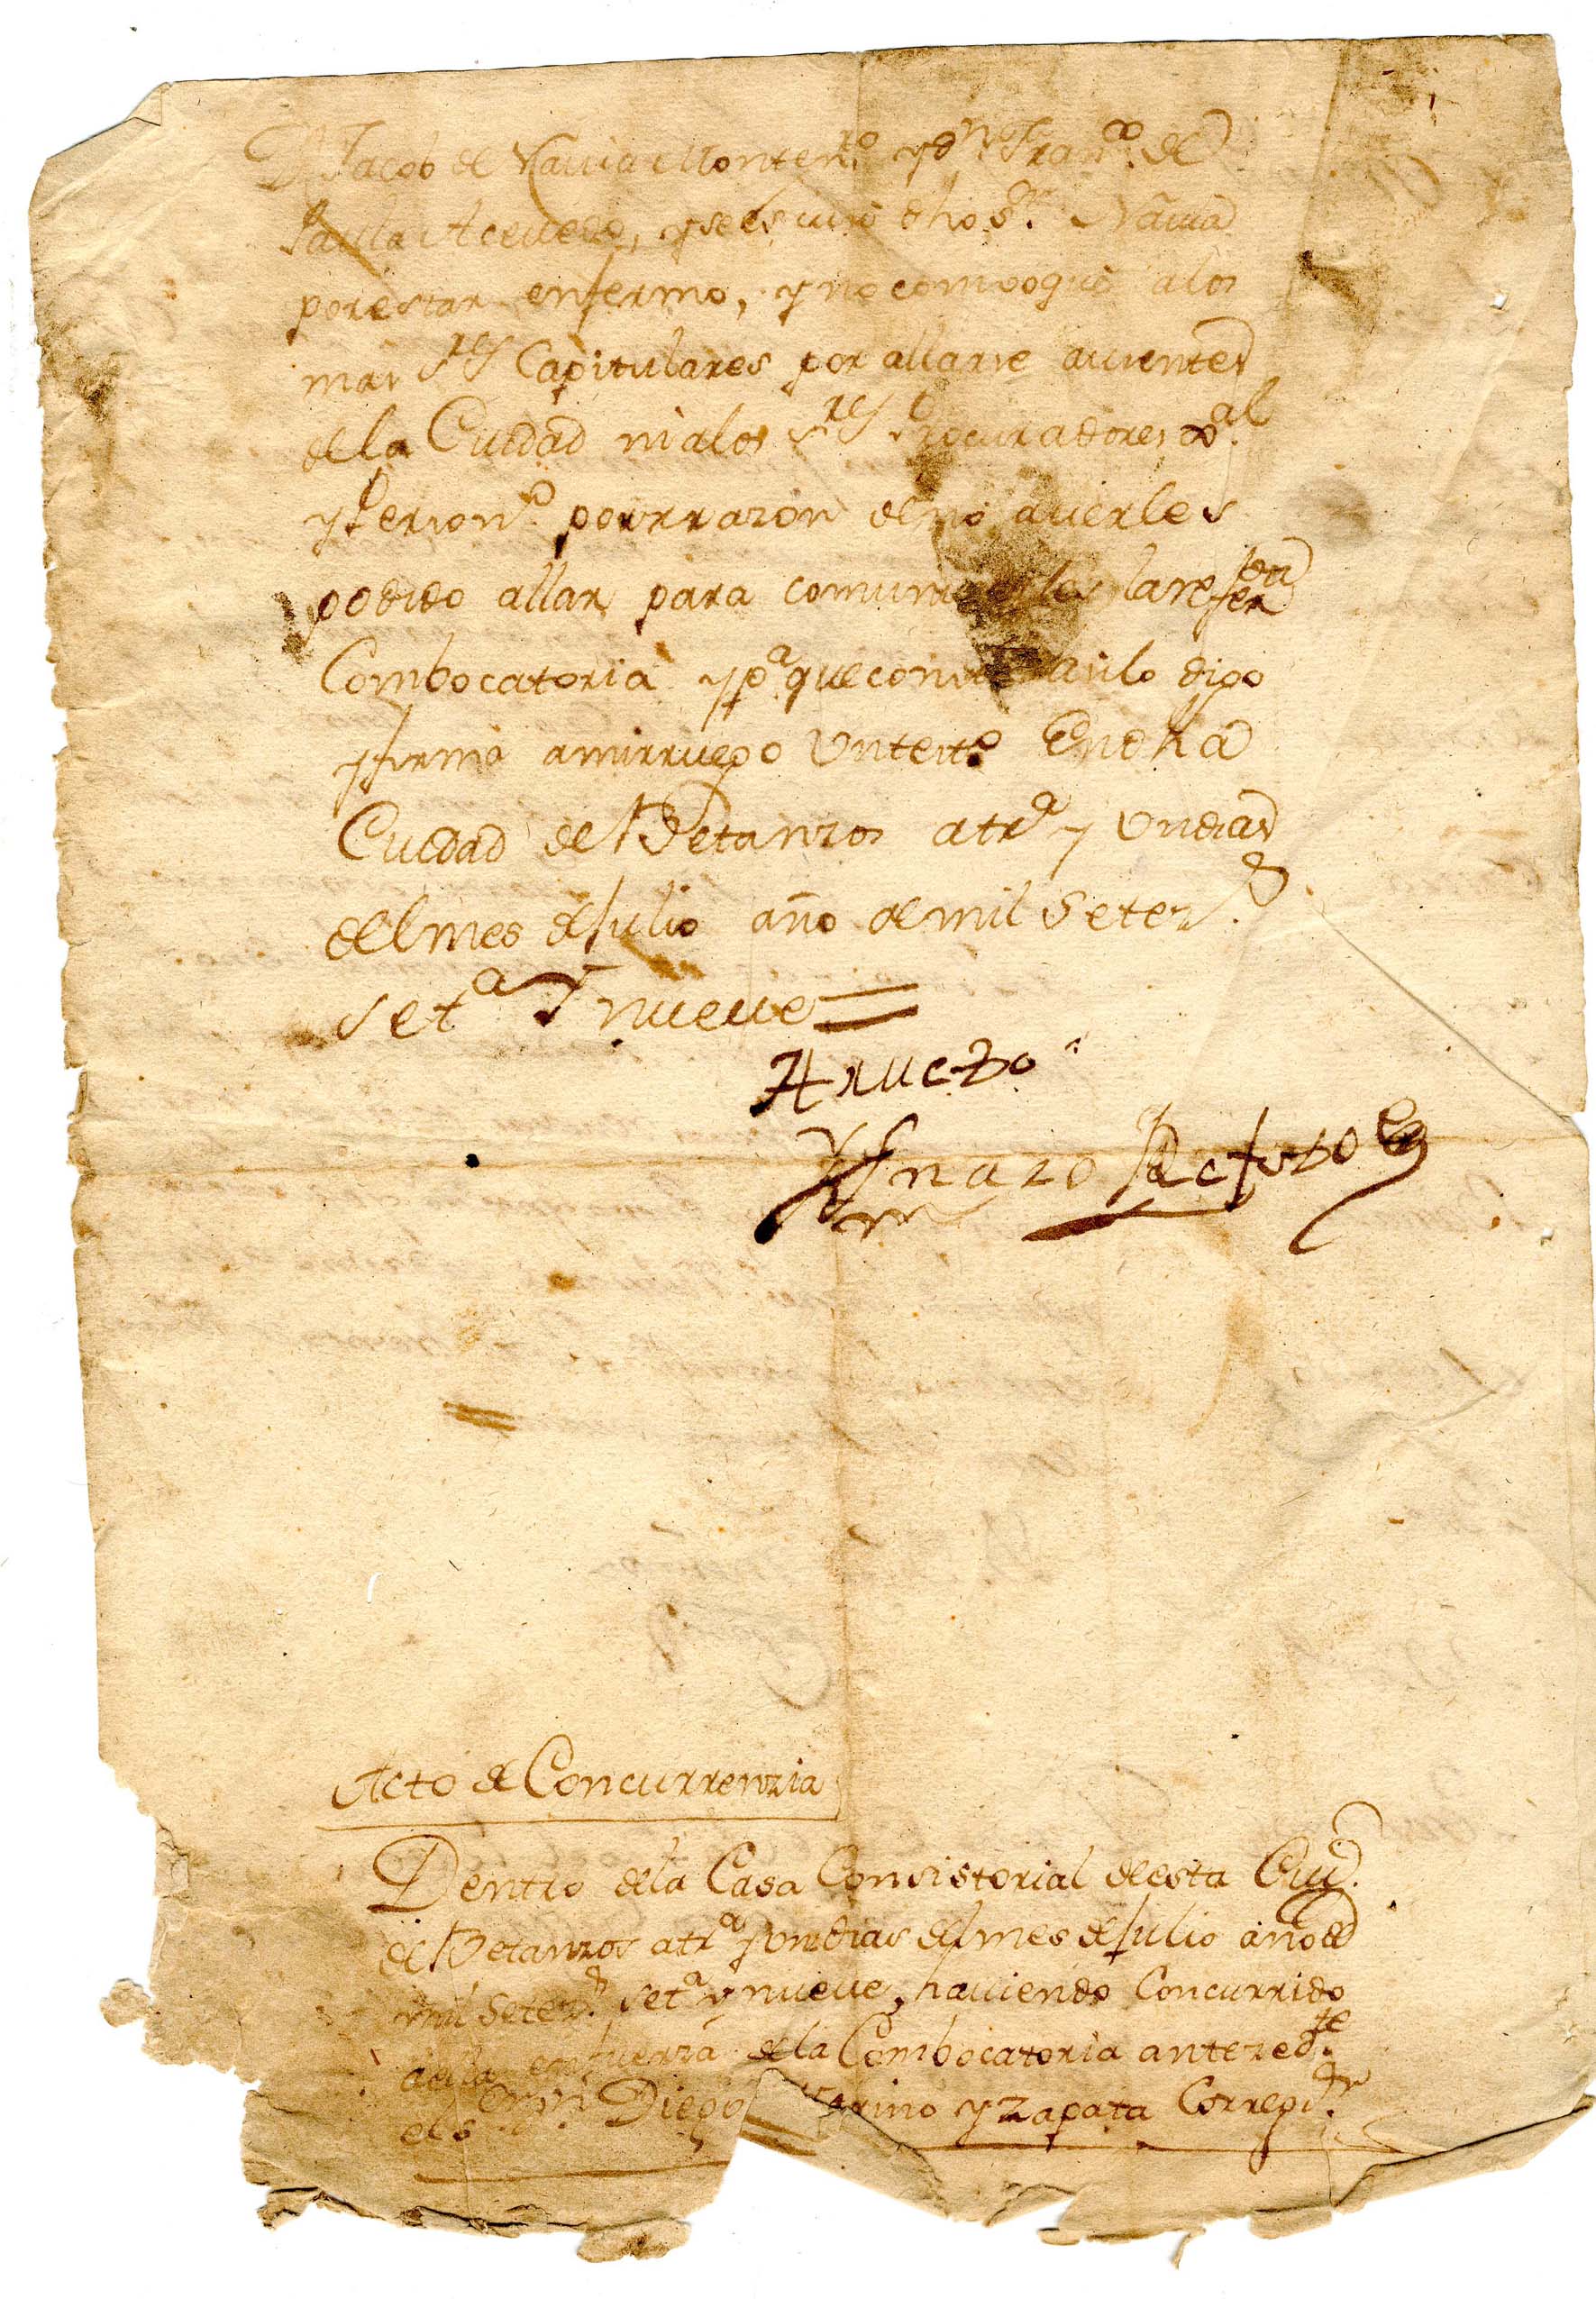 Dn Jacob de Navia Monten.ro y dn Franco. de
Paula Acevedo, y se escusó dho sr. Navia
por estar enfermo, y no comvoqué a los
mas Sres Capitulares por allarse ausentes
de la Ciudad ni a los Sres Procuradores Gral
y Person.o por rrazon de no averles
podido allar para comunicarles la referida
Combocatoria y pa que conste asi lo digo
y firma a mi rruego un testo. En dha
Ciudad de Betanzos a tra y un dias
del mes de Julio año de mil Setez.s
seta y nueve =
A rruego
Dentro de la Casa Consistorial de esta Ciud.
de Betanzos a tra y un dias del mes de Julio año de
mil Setez.s seta y nueve, haviendo Concurrido
a ella en fuerza de la Combocatoria antezedte
el s.or Dn Diego y Zapata Corregi.dr
Acto de Concurrenzia